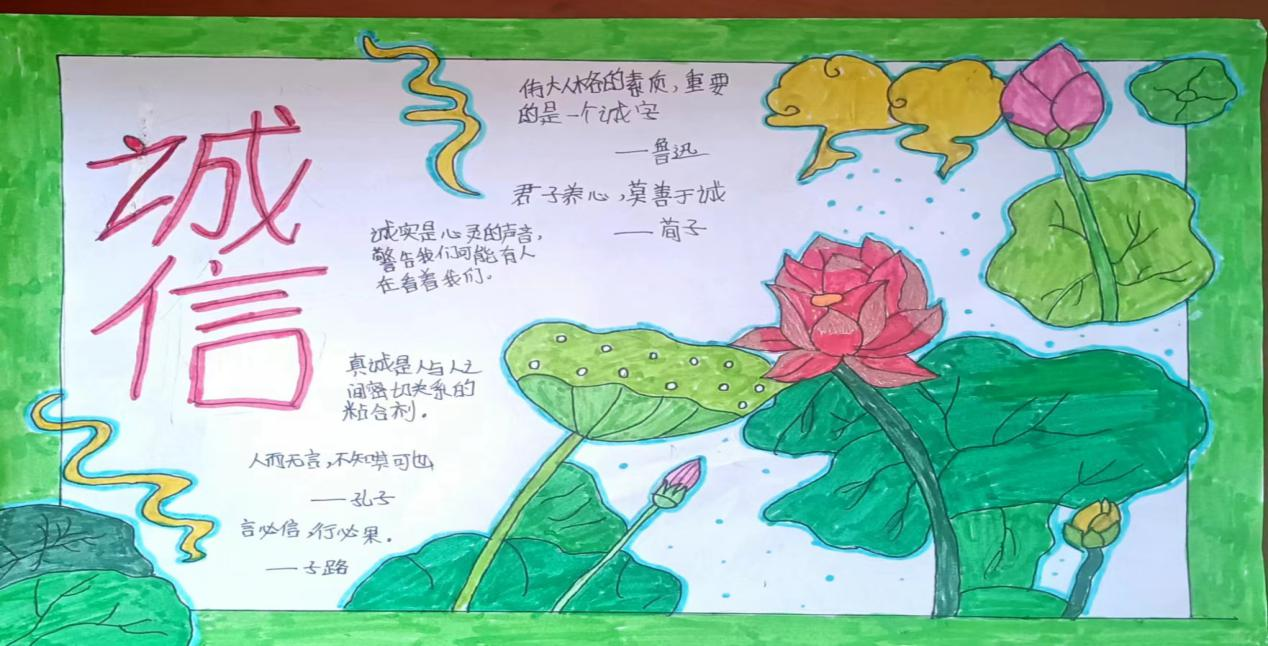 诚
信
伟大人格的素质，重要
的是一个诚字
——鲁迅
君子养心，莫善于诚
——荀子
诚实是心灵的声音，
警告我们可能有人
在看着我们。
真诚是人与人之
间密切关系的
粘合剂。
人而无言，不知其可也
——孔子
言必信，行必果。
——子路